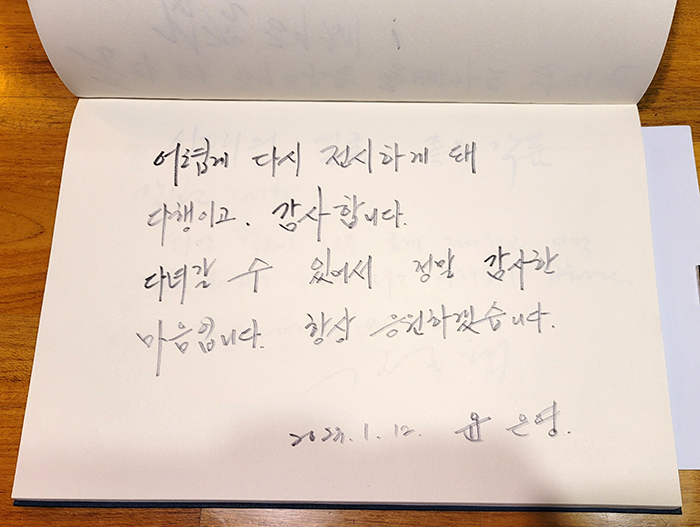 어렵게 다시 전시하게 돼
다행이고, 감사합니다.
다녀갈 수 있어서 정말 감사한
마음입니다. 항상 응원하겠습니다.
2023. 1. 12. 윤은영.